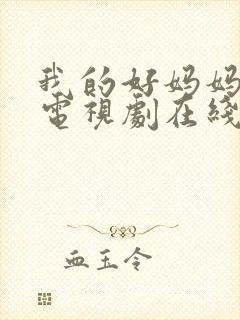 我的好妈妈
電視劇在綫
血玉令